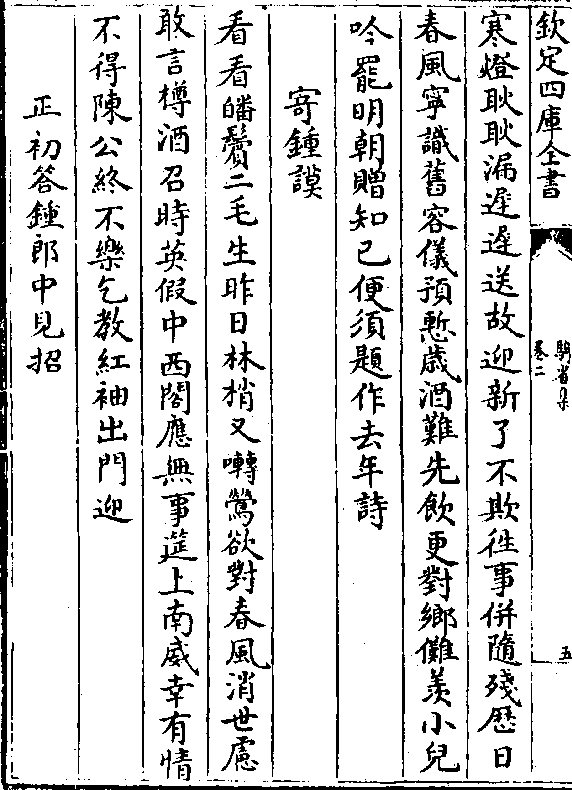 欽定四庫全書
騎省集
卷二
五
寒燈耿耿漏遲遲送故迎新了不欺徃事併隨殘厯日
春風寧識舊容儀預慙歲酒難先飲更對鄉儺羨小兒
吟罷明朝贈知已便須題作去年詩
寄鍾謨
看看皤鬢二毛生昨日林梢又囀鶯欲對春風消世慮
敢言樽酒召時英假中西閣應無事筵上南威幸有情
不得陳公終不樂乞教紅袖出門迎
正初答鍾郎中見招